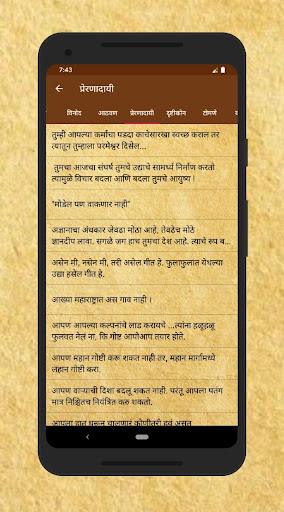 7:43
← प्रेरणादायी
विनोद आठवण प्रेरणादायी दृष्टीकोन टोमणे
तुम्ही आपल्या कर्माचा पडदा काचेसारखा स्वच्छ कराल तर
त्यातून तुम्हाला परमेश्वर दिसेल...
तुमचा आजचा संघर्ष तुमचे उद्याचे सामर्थ्य निर्माण करतो
त्यामुळे विचार बदला आणि बदला तुमचे आयुष्य !
"मोडेल पण वाकणार नाही"
अज्ञानाचा अंधकार जेवढा मोठा आहे, तेवढेच मोठे
ज्ञानदीप लावा. सगळे जग हाच तुमचा देश आहे. त्याचे रुप ब...
असेन मी, नसेन मी, तरी असेल गीत हे. फुलाफुलात येथल्या
उद्या हसेल गीत हे.
आख्या महाराष्ट्रात अस गाव नाही ।
आपण आपल्या कल्पनांचे लाड करायचे ...त्यांना हळूहळू
फुलवत नेलं ना, कि गोष्ट आपोआप तयार होते.
आपण महान गोष्टी करू शकत नाही तर, महान मार्गामध्ये
लहान गोष्टी करा.
आपण वाऱ्याची दिशा बदलू शकत नाही. परंतू आपला पतंग
मात्र निश्चितच नियंत्रित करु शकतो.